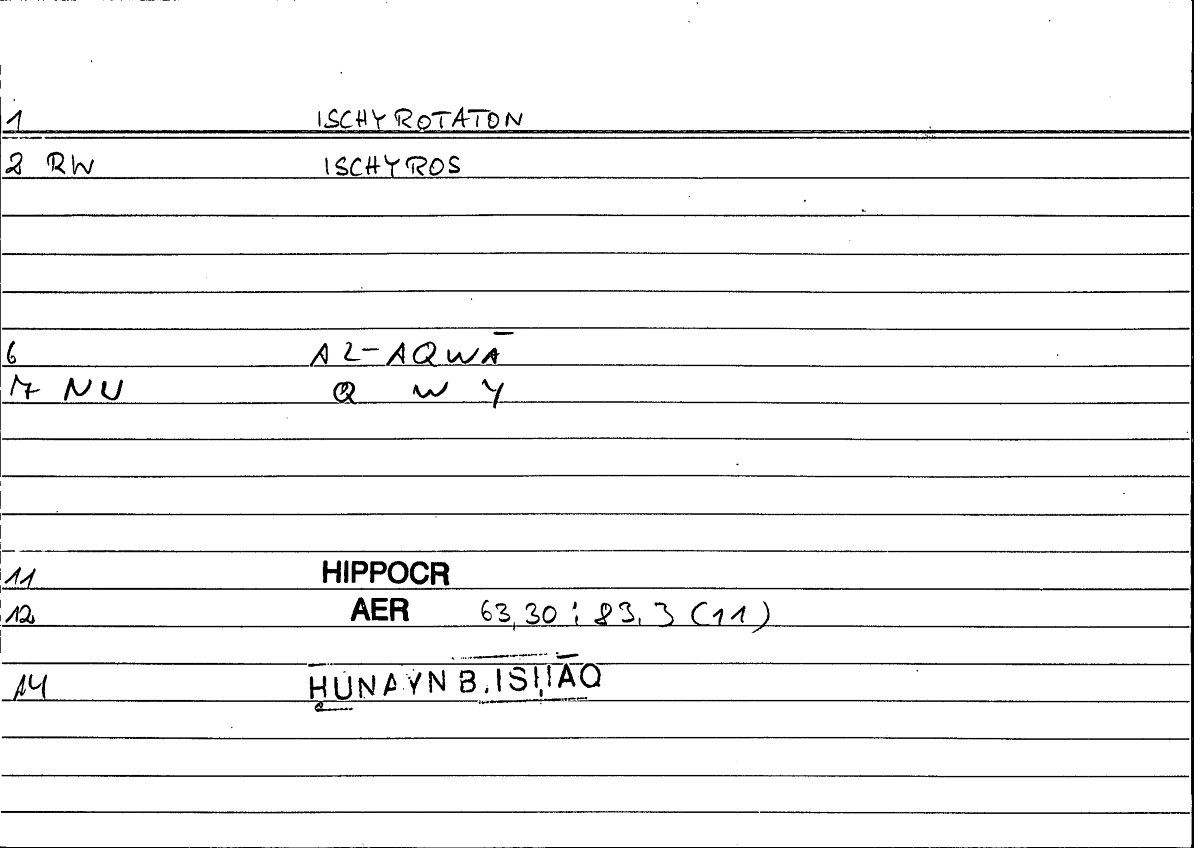 1 ISCHYROTATON
2 RW ISCHYROS
6 AL-AQWĀ
7 NU Q W Y
11 HIPPOCR
12 AER 63,30 : 83,3 (11)
14 ḤUNAYN B. ISḤĀQ